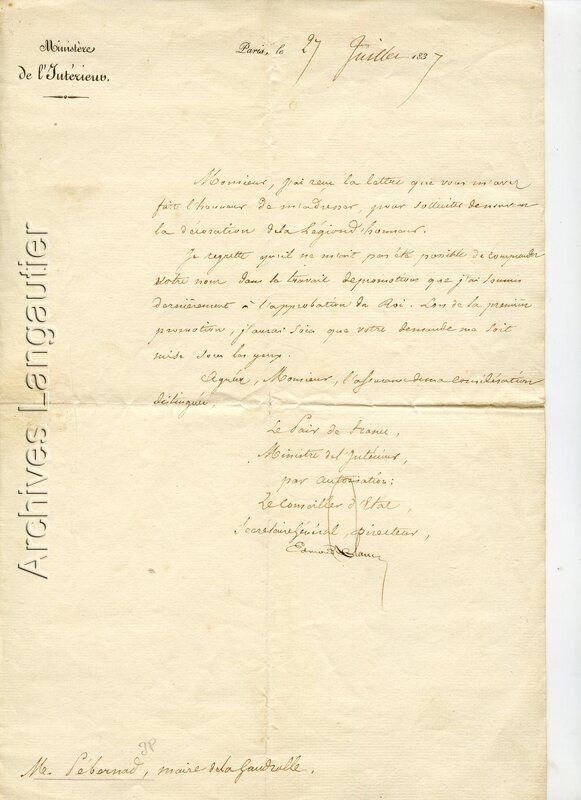 Ministère
de l'Intérieur.
Paris, le 27 Juillet 1837
Monsieur, j'ai reçu la lettre que vous m'avez
fait l'honneur de m'adresser, pour solliciter de nouveau
la décoration de la Légion d'honneur.
Je regrette qu'il ne m'ait pas été possible de comprendre
votre nom dans le travail de promotions que j'ai soumis
dernièrement à l'approbation du Roi. Lors de la première
promotion, j'aurai soin que votre demande me soit
mise sous les yeux.
Agréez, Monsieur, l'assurance de ma considération
distinguée,
Le Pair de France,
Ministre de l'Intérieur,
par autorisation:
Le Conseiller d'Etat,
Secrétaire Général, Directeur,
Edmond Blanc
JP
Mr. Pébernad, maire de la Gaudrolle.
Archives Langautier